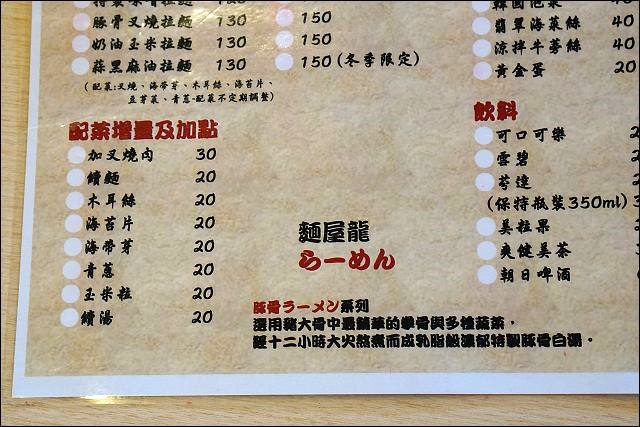 豚骨叉燒拉麵 130
奶油玉米拉麵 130
蒜黑麻油拉麵 130
(配菜:叉燒、海帶芽、木耳絲、海苔片、
豆芽菜、青蔥-配菜不定期調整)
150
150
150 (冬季限定)
韓國泡菜
翡翠海菜絲 40
涼拌牛蒡絲 40
黃金蛋 20
配菜增量及加點
加叉燒肉 30
續麵 20
木耳絲 20
海苔片 20
海帶芽 20
青蔥 20
玉米粒 20
續湯 20
飲料
可口可樂
雪碧
芩達
(保特瓶裝350ml)
美粒果
爽健美茶
朝日啤酒
麵屋龍
らーめん
豚骨ラーメン系列
選用豬大骨中最精華的拳骨與多種蔬菜,
經十二小時大火熬煮而成乳脂般濃郁特製豚骨白湯。